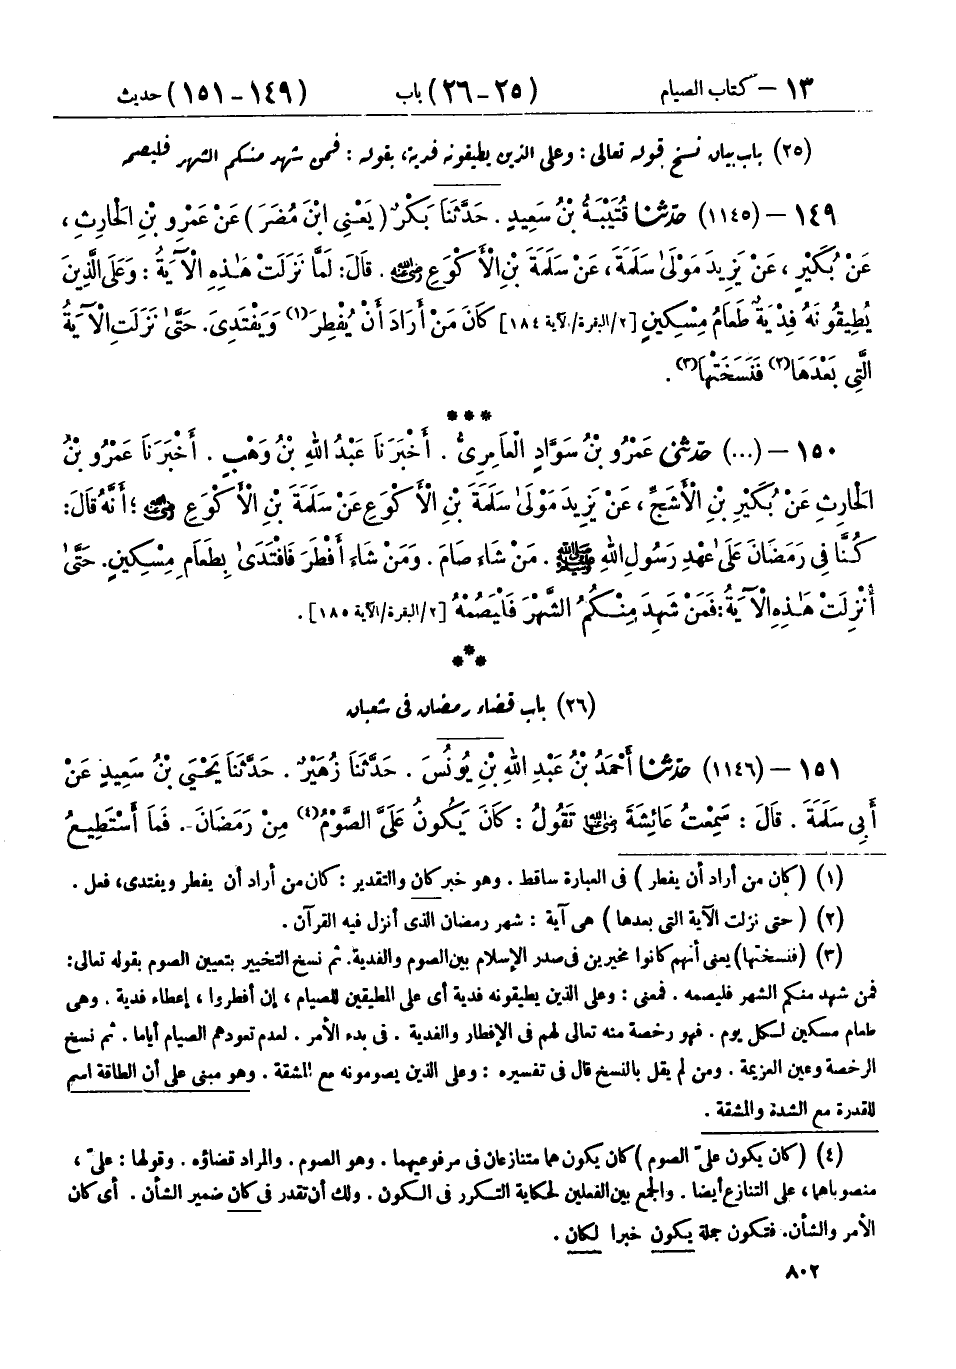 ١٣ – كتاب الصيام (٢٥-٢٦) باب (١٤٩-١٥١) حديث
(٢٥) باب بيان نسخ قوله تعالى : وعلى الذين يطيقونه فدية، بقوله : فمن شهد منكم الشهر فليصمه
١٤٩ – (١١٤٥) حَدَّثَنَا قُتَيْبَةُ بْنُ سَعِيدٍ . حَدَّثَنَا بَكْرٌ ( يَعْنِي ابْنَ مُضَرَ ) عَنْ عَمْرِو بْنِ الْحَارِثِ ،
عَنْ بُكَيْرٍ ، عَنْ يَزِيدَ مَوْلَىٰ سَلَمَةَ، عَنْ سَلَمَةَ بْنِ الْأَكْوَعِ رضي الله عنه . قَالَ: لَمَّا نَزَلَتْ هَـٰذِهِ الْآيَةُ : وَعَلَى الَّذِينَ
يُطِيقُونَهُ فِدْيَةٌ طَعَامُ مِسْكِينٍ [٢/البقرة/الآية ١٨٤] كَانَ مَنْ أَرَادَ أَنْ يُفْطِرَ(١) وَيَفْتَدِىَ. حَتَّىٰ نَزَلَتِ الْآيَةُ
الَّتِي بَعْدَهَا(٢) فَنَسَخَتْهَا(٣) .
***
١٥٠ – (...) حَدَّثَنِي عَمْرُو بْنُ سَوَّادٍ الْعَامِرِىُّ . أَخْبَرَنَا عَبْدُ اللهِ بْنُ وَهْبٍ . أَخْبَرَنَا عَمْرُو بْنُ
الْحَارِثِ عَنْ بُكَيْرِ بْنِ الْأَشَجِّ ، عَنْ يَزِيدَ مَوْلَىٰ سَلَمَةَ بْنِ الْأَكْوَعِ عَنْ سَلَمَةَ بْنِ الْأَكْوَعِ رضي الله عنه ؛ أَنَّهُ قَالَ:
كُنَّا فِي رَمَضَانَ عَلَىٰ عَهْدِ رَسُولِ اللهِ ﷺ . مَنْ شَاءَ صَامَ . وَمَنْ شَاءَ أَفْطَرَ فَافْتَدَىٰ بِطَعَامِ مِسْكِينٍ. حَتَّىٰ
أُنْزِلَتْ هَـٰذِهِ الْآيَةُ: فَمَنْ شَهِدَ مِنْكُمُ الشَّهْرَ فَلْيَصُمْهُ [٢/البقرة/الآية ١٨٥] .
***
(٢٦) باب قضاء رمضان فى شعبان
١٥١ – (١١٤٦) حَدَّثَنَا أَحْمَدُ بْنُ عَبْدِ اللهِ بْنِ يُونُسَ . حَدَّثَنَا زُهَيْرٌ . حَدَّثَنَا يَحْيَىٰ بْنُ سَعِيدٍ عَنْ
أَبِي سَلَمَةَ . قَالَ : سَمِعْتُ عَائِشَةَ رضي الله عنها تَقُولُ : كَانَ يَكُونُ عَلَىَّ الصَّوْمُ(٤) مِنْ رَمَضَانَ . فَمَا أَسْتَطِيعُ
(١) (كان من أراد أن يفطر ) فى العبارة ساقط . وهو خبر كان والتقدير : كان من أراد أن يفطر ويفتدى، فعل .
(٢) ( حتى نزلت الآية التى بعدها ) هى آية : شهر رمضان الذى أنزل فيه القرآن .
(٣) (فنسختها) يعنى أنهم كانوا مخيرين فى صدر الإسلام بين الصوم والفدية. ثم نسخ التخيير بتعيين الصوم بقوله تعالى:
فمن شهد منكم الشهر فليصمه . فمعنى : وعلى الذين يطيقونه فدية أى على المطيقين للصيام ، إن أفطروا ، إعطاء فدية . وهى
طعام مسكين لكل يوم . فهو رخصة منه تعالى لهم فى الإفطار والفدية . فى بدء الأمر . لعدم تعودهم الصيام أياما . ثم نسخ
الرخصة وعين العزيمة . ومن لم يقل بالنسخ قال فى تفسيره : وعلى الذين يصومونه مع المشقة . وهو مبنى على أن الطاقة اسم
للقدرة مع الشدة والمشقة .
(٤) (كان يكون علىّ الصوم ) كان يكون هما متنازعان فى مرفوعيهما . وهو الصوم . والمراد قضاؤه . وقولها : علىّ ،
منصوباهما ، على التنازع أيضا . والجمع بين الفعلين لحكاية التكرر فى الكون . ولك أن تقدر فى كان ضمير الشأن . أى كان
الأمر والشأن. فتكون جملة يكون خبرا لكان .
٨٠٢